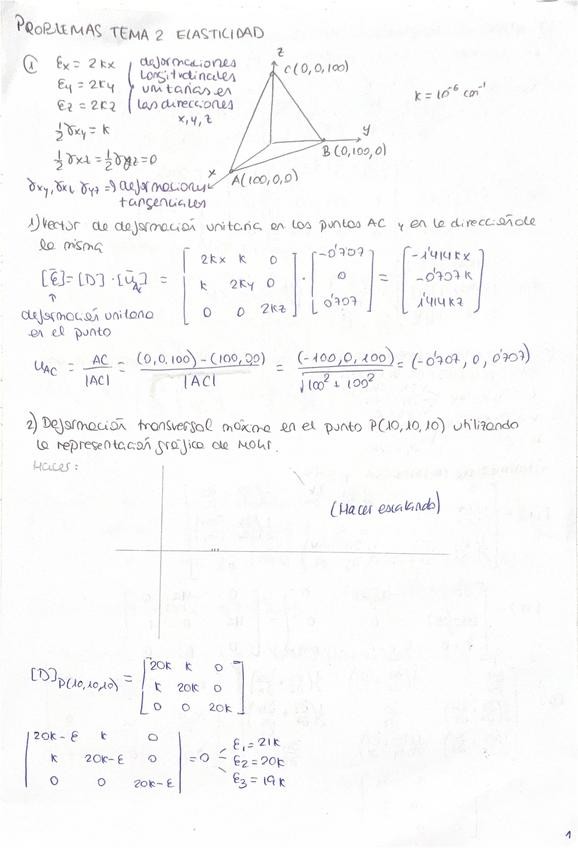 PROBLEMAS TEMA 2 ELASTICIDAD
① Ex = 2kx deformaciones
Ey = 2ky longitudinales
Ez = 2kz unitarias en
las direcciones
x, y, z
½γxy = k
½γxz = ½γyz = 0
γxy, γxz, γyz => deformaciones
tangenciales
z
C(0,0,100)
y
B(0,100,0)
x
A(100,0,0)
k = 10⁻⁶ cm⁻¹
1) Vector de deformación unitaria en los puntos AC y en la dirección de
la misma
[ε̄] = [D]·[ūAC] = [2kx k 0; k 2ky 0; 0 0 2kz] · [-0'707; 0; 0'707] = [-1'414kx; -0'707k; 1'414kz]
deformación unitaria
en el punto
uAC = AC/|AC| = (0,0,100)-(100,0,0)/|AC| = (-100,0,100)/√100²+100² = (-0'707, 0, 0'707)
2) Deformación transversal máxima en el punto P(10,10,10) utilizando
la representación gráfica de Mohr.
Hacer:
(Hacer escalando)
[D]P(10,10,10) = [20k k 0; k 20k 0; 0 0 20k]
|20k-ε k 0; k 20k-ε 0; 0 0 20k-ε| = 0
ε1 = 21k
ε2 = 20k
ε3 = 19k
1